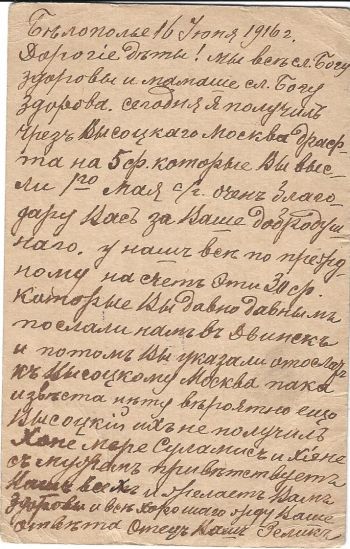 Бѣлополье 16 Юня 1916 г.
Дорогіе дѣты! мы всѣ сл. Богу
здоровы и мамаше сл. Богу
здорова. сегодня я получилъ
чрезъ Высоцкаго Москва драф-
та на 5 ф. которые Вы выс-
ли 1го Мая с/г. очень благо-
дару Васъ за Ваше
наго. у насъ всѣ по прежд-
ному на счетъ эти 30 ф.
которые Вы давно давнымъ
послали намъ въ Двинскъ
и потомъ Вы указали
къ Высоцкому Москва пака
извѣста нѣту вѣроятно ещо
Высоцкій ихъ не получилъ
съ привѣтствуетъ
Васъ всѣхъ и желаетъ Вамъ
здоровы и всѣ хорошаго Ваше
отвѣта Отецъ Вашъ Зеликъ